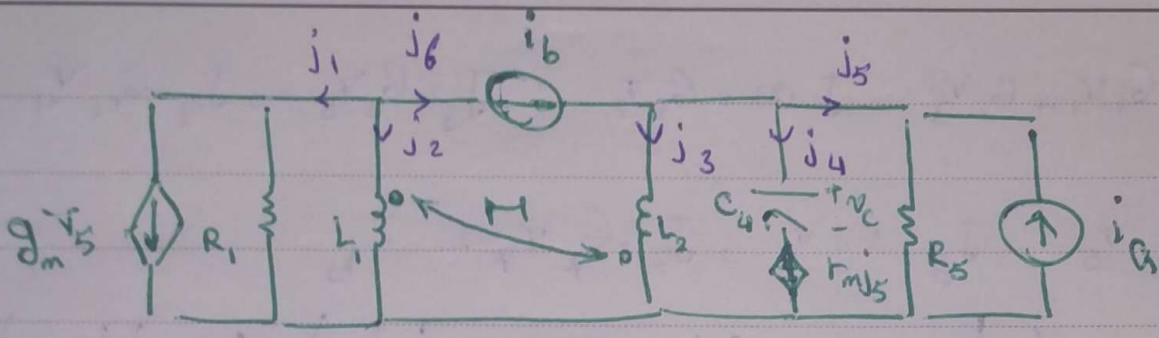 j1 j6 i_b j5
j2 j3 j4
M
g_m v_5 R_1 L_1 L_2 C_4 + v_c - r_m j_5 R_5 i_a